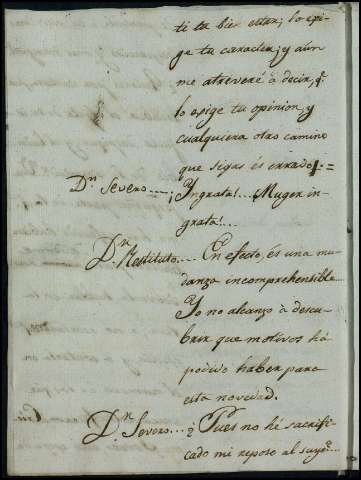 ti tu bien estar; lo exi-
ge tu caracter; y aún
me atreveré à decir, q.e
lo exige tu opinion, y
cualquiera otro camino
que sigas és errado. =
D.n Severo.... ¡Yngrata!... Muger in-
grata!...
D.n Restituto.... En efecto, és una mu-
danza incomprehensible...
Yo no alcanzo à descu-
brir que motivos há
podido haber para
esta novedad.
D.n Severo.... ¿Pues no hé sacrifi-
cado mi reposo al suyo?...